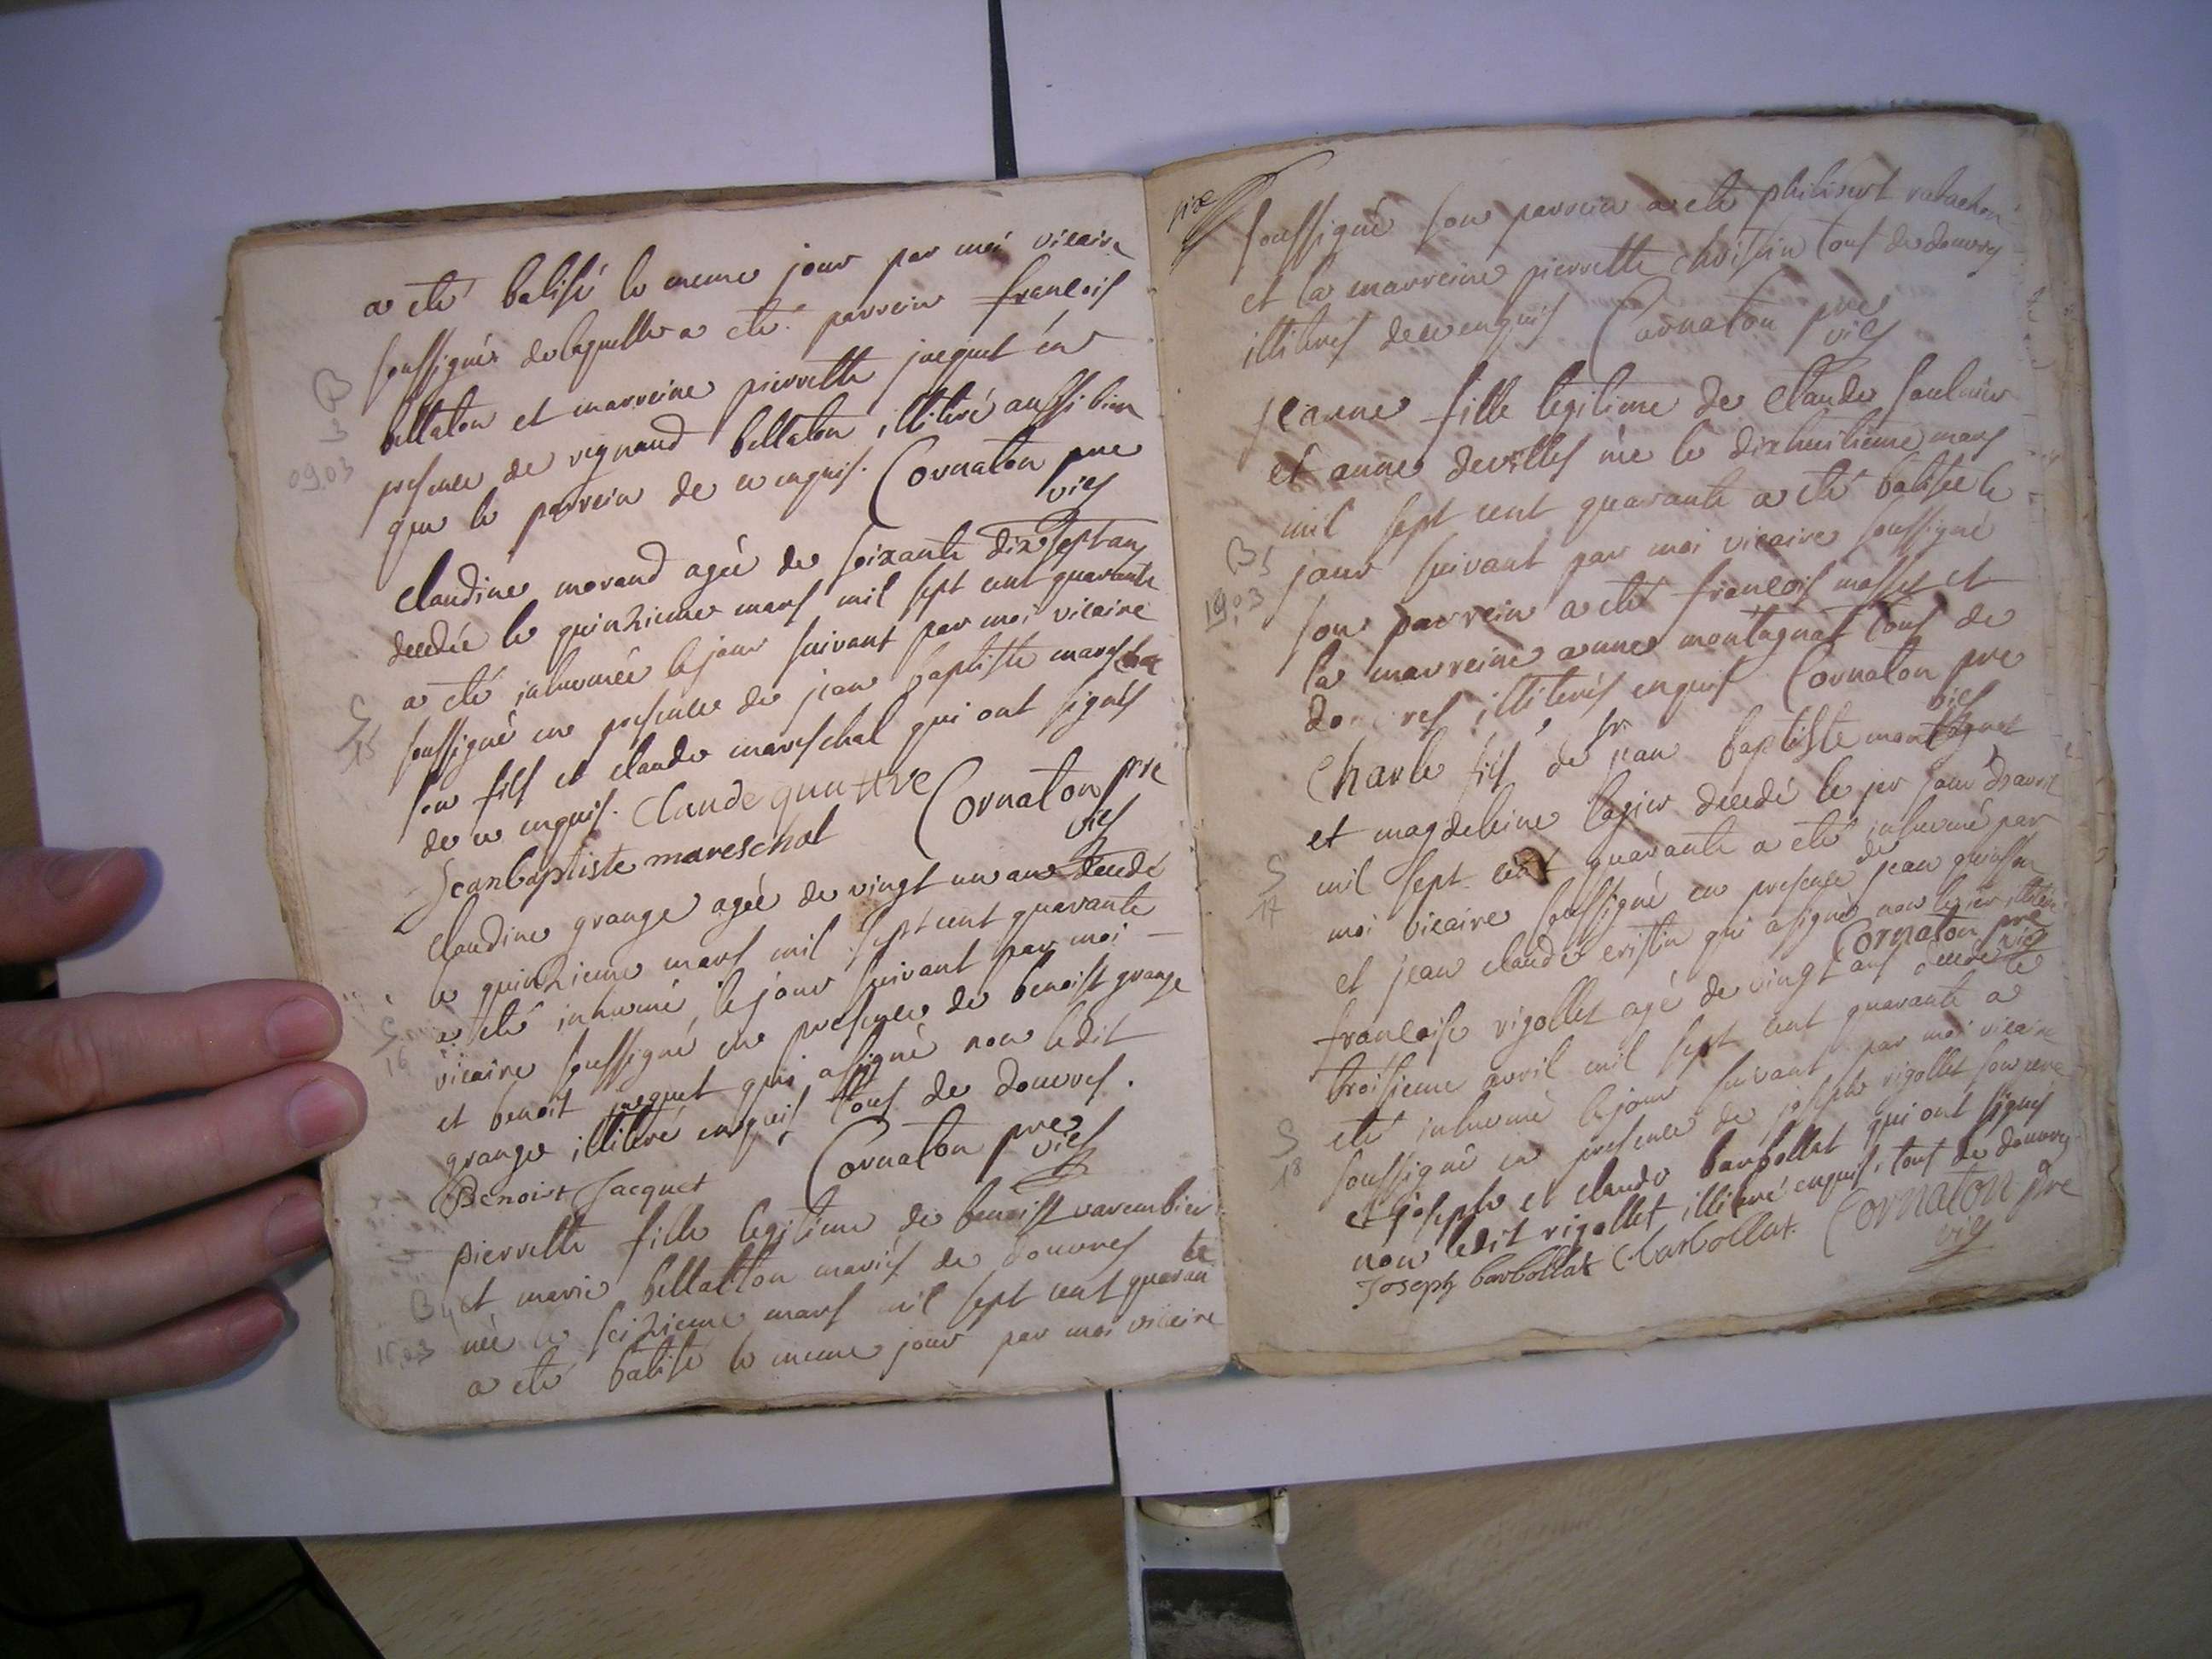 a eté batisé le meme jour par moi vicaire
soussigné de laquelle a eté parrein francois
bellaton et marreine pierrette jacquet en
presence de reynaud bellaton illiteré aussi bien
que le parrein de ce enquis. Cornaton pre
vics
B
3
09.03
Claudine morand agée de soixante dix sept ans
decedée le quinzieme mars mil sept cent quarante
a eté inhumée le jour suivant par moi vicaire
soussigné en presence de jean baptiste mareschal
son fils et claude mareschal qui ont signés
de ce enquis. Claude
Cornaton pre
vics
Jean baptiste mareschal
S
15
Claudine grange agée de vingt un ans decedé
le quinzieme mars mil sept cent quarante
a eté inhumé le jour suivant par moi
vicaire soussigné en presence de benoist grange
et benoit jacquet qui a signé non ledit
grange illiteré enquis tous de douvres.
Benoist Jacquet Cornaton pre
vics
S
16
pierrette fille legitime de benoist varembier
et marie bellatton mariés de douvres
née le seizieme mars mil sept cent quaran te
a eté batisé le meme jour par moi vicaire
B4
16.03
soussigné son parrein a eté philibert
et la marreine pierrette tous de douvres
illiterés de ce enquis Cornaton pre
vics
jeanne fille legitime de Claude saulnier
et anne devilles née le dixhuitieme mars
mil sept cent quarante a eté batisée le
jour suivant par moi vicaire soussigné
son parrein a eté francois massey et
la marreine anne montagnat tous de
douvres illiterés enquis Cornaton pre
vics
B5
19.03
Charle fils de sr jean baptiste montagnat
et magdeleine lagier decedé le jer jour d'avril
mil sept cent quarante a eté inhumé par
moi vicaire soussigné en presence de jean
et jean claude cristin qui a signé non
Cornaton pre
vics
S
17
francoise rigollet agé de vingt ans decedé le
troisieme avril mil sept cent quarante a
eté inhumé le jour suivant par moi vicaire
soussigné en presence de joseph rigollet son
et joseph et claude barbollat qui ont signés
non ledit rigollet illiteré enquis, tous de douvres
Joseph barbollat C barbollat. Cornaton pre
vics
S
18